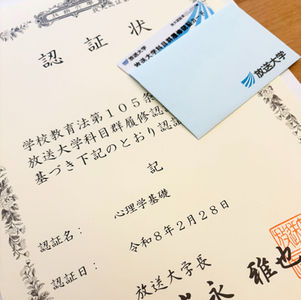 認証状
放送大学
放送大学
学校教育法第105条
放送大学科目群履修認証
基づき下記のとおり認証
記
心理学基礎
認証名：
令和8年2月28日
認証日：
放送大学長
永 雅也